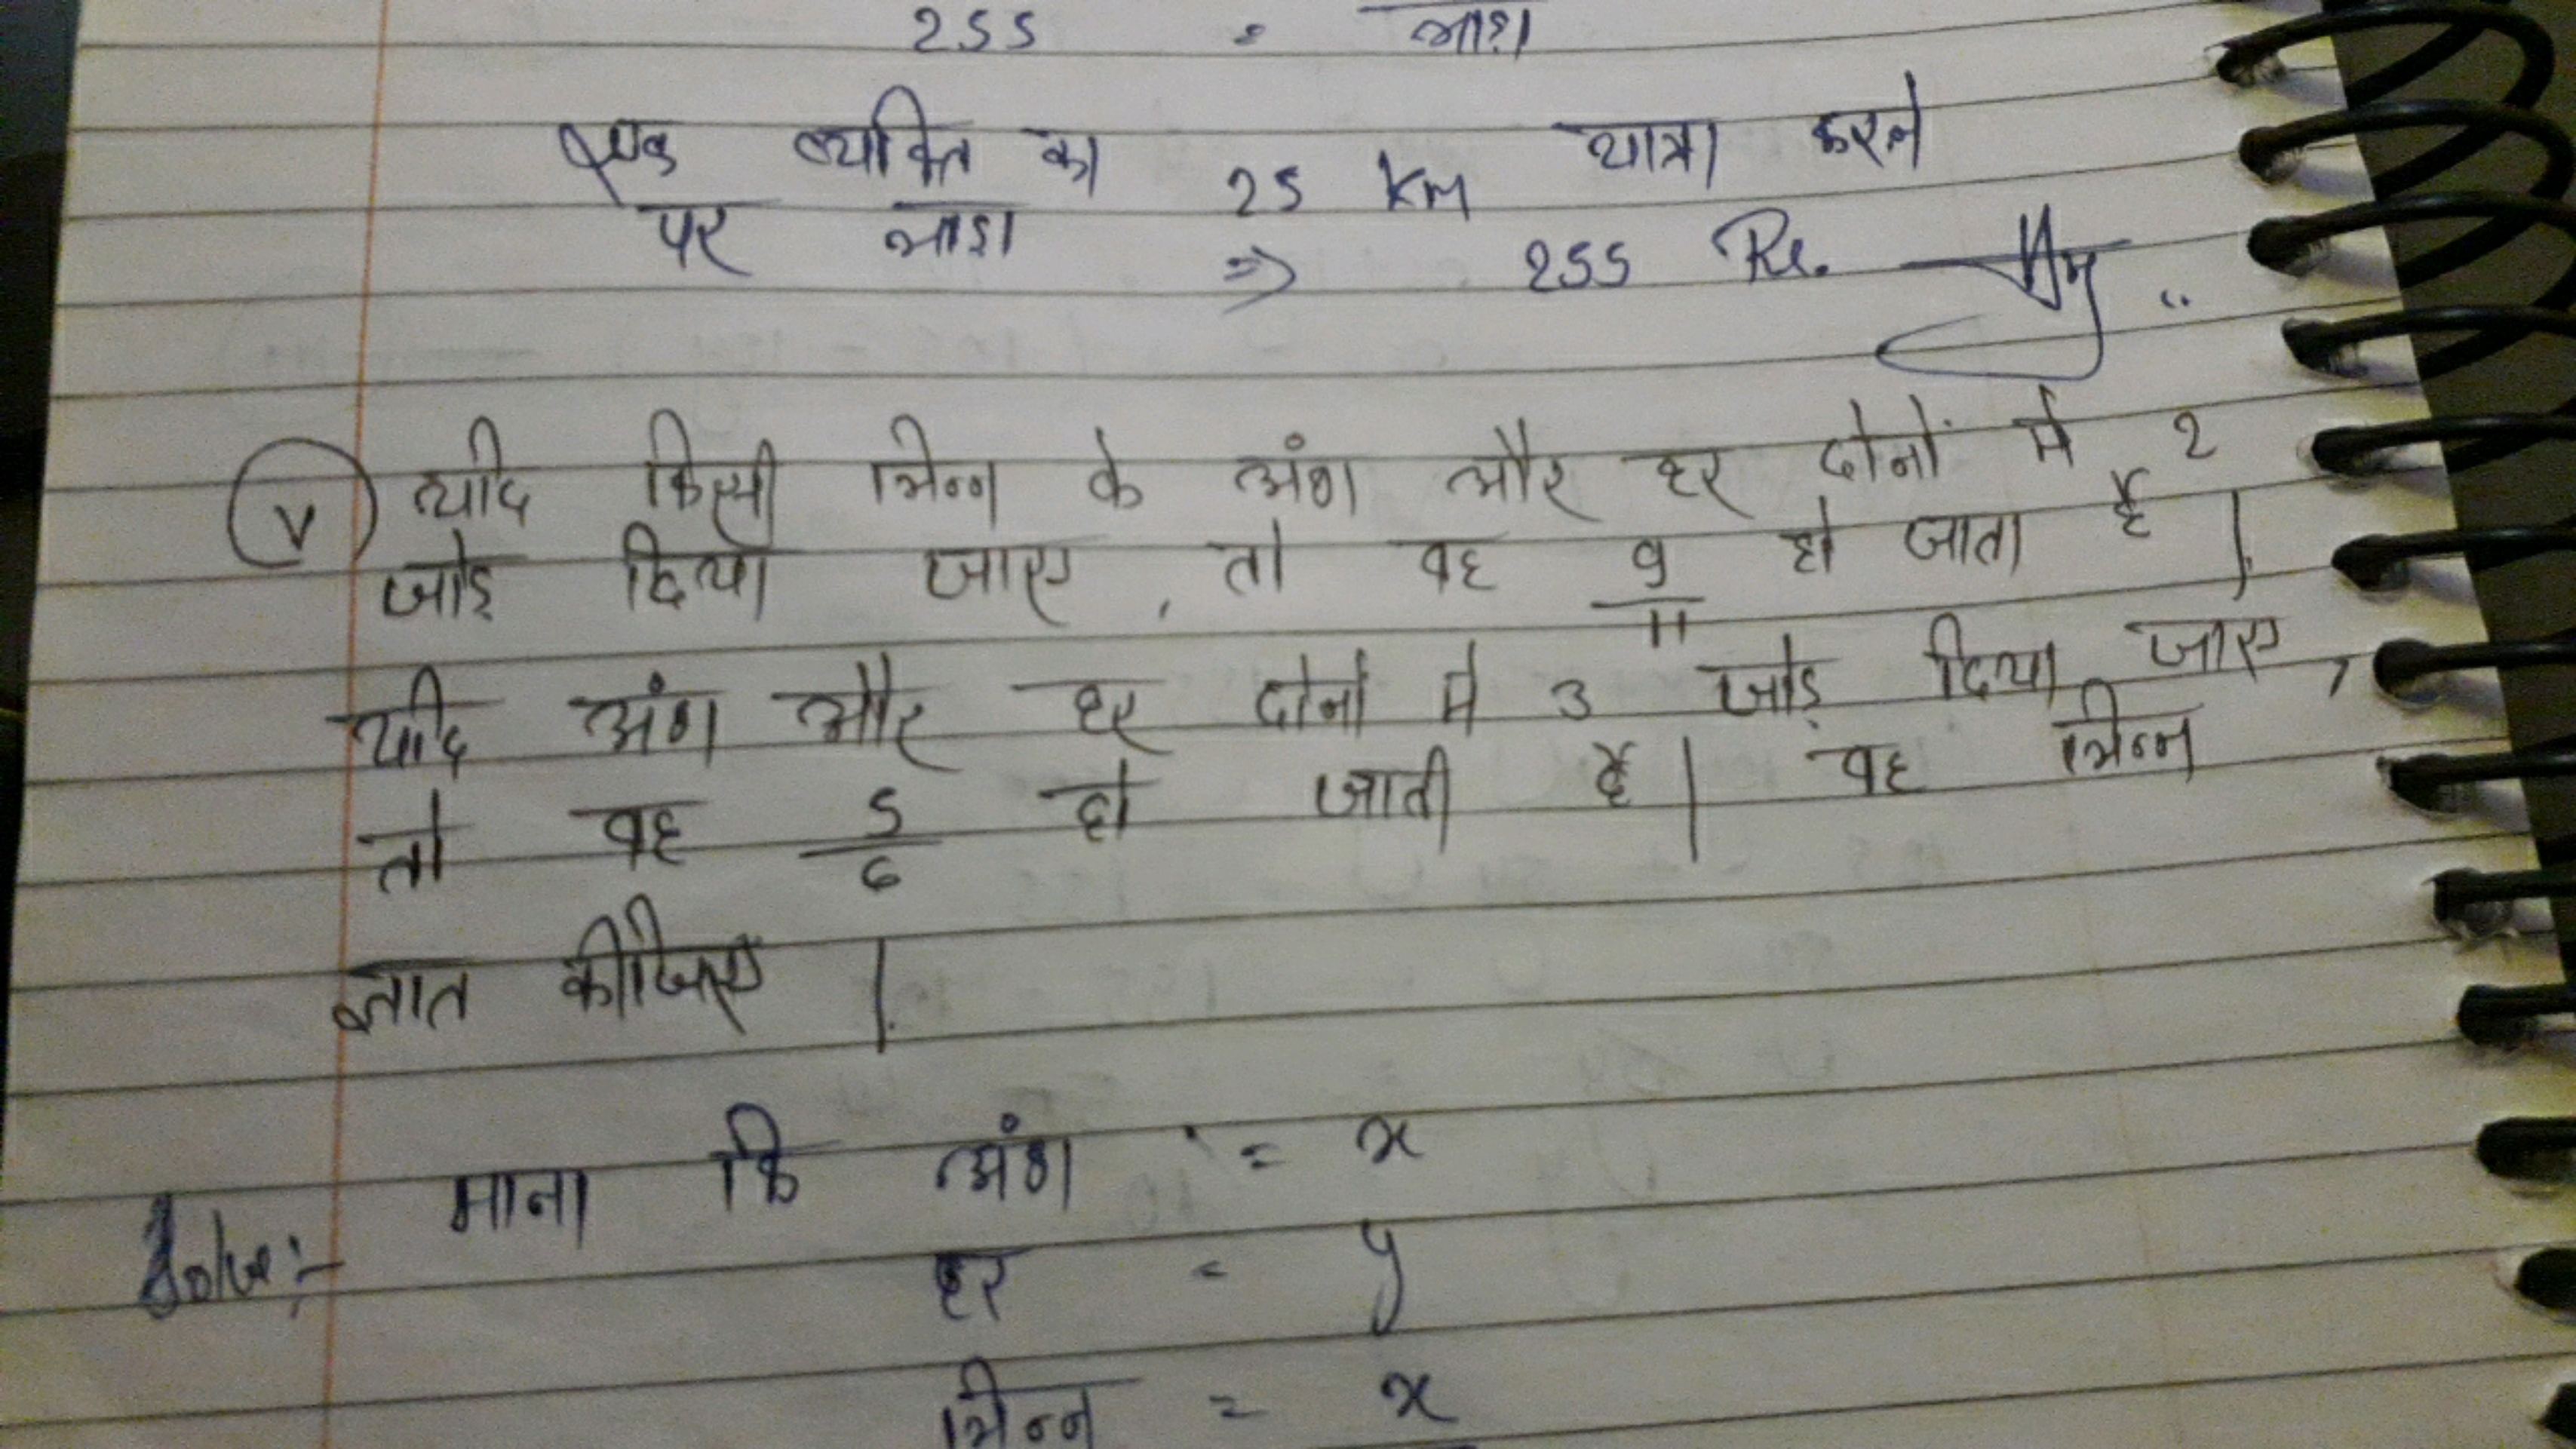 255 = भाड़ा
एक व्यक्ति का 25 km यात्रा करने
पर भाड़ा ⇒ 255 Re. Ans ..
(v) यदि किसी भिन्न के अंश और हर दोनों में 2
जोड़ दिया जाए, तो वह 9/11 हो जाता है |
यदि अंश और हर दोनों मे 3 जोड़ दिया जाए,
तो वह 5/6 हो जाती है | वह भिन्न
ज्ञात कीजिए |
Solve:- माना कि अंश = x
हर = y
भिन्न = x